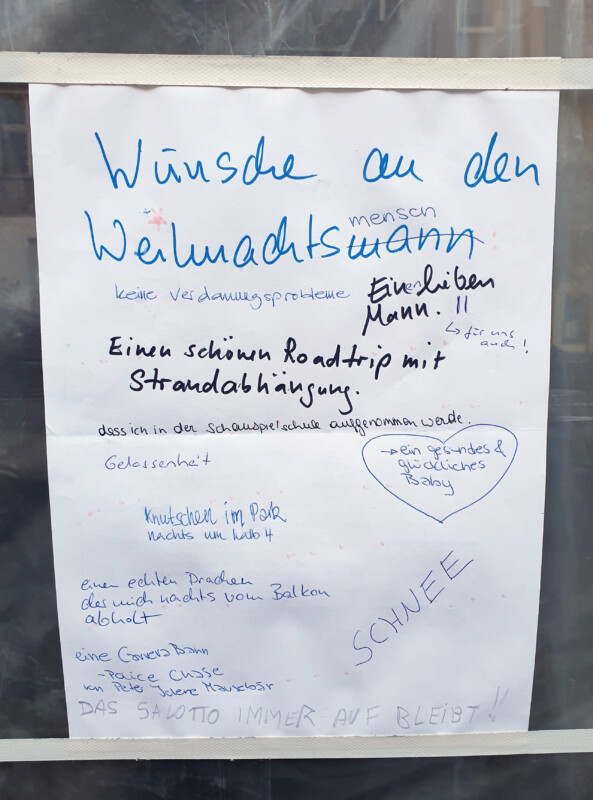 Wünsche an den
Weihnachtsmann
mensch
keine Verdauungsprobleme
Einen lieben
Mann. !!
↳ für uns
auch!
Einen schönen Roadtrip mit
Strandabhängung.
dass ich in der Schauspielschule aufgenommen werde.
Gelassenheit
→ ein gesundes &
glückliches
Baby
Knutschen im Park
nachts um halb 4
einen echten Drachen
der mich nachts vom Balkon
abholt
SCHNEE
eine Carrera Bahn
- Police Chase
von Peter
DAS SALOTTO IMMER AUF BLEIBT!!